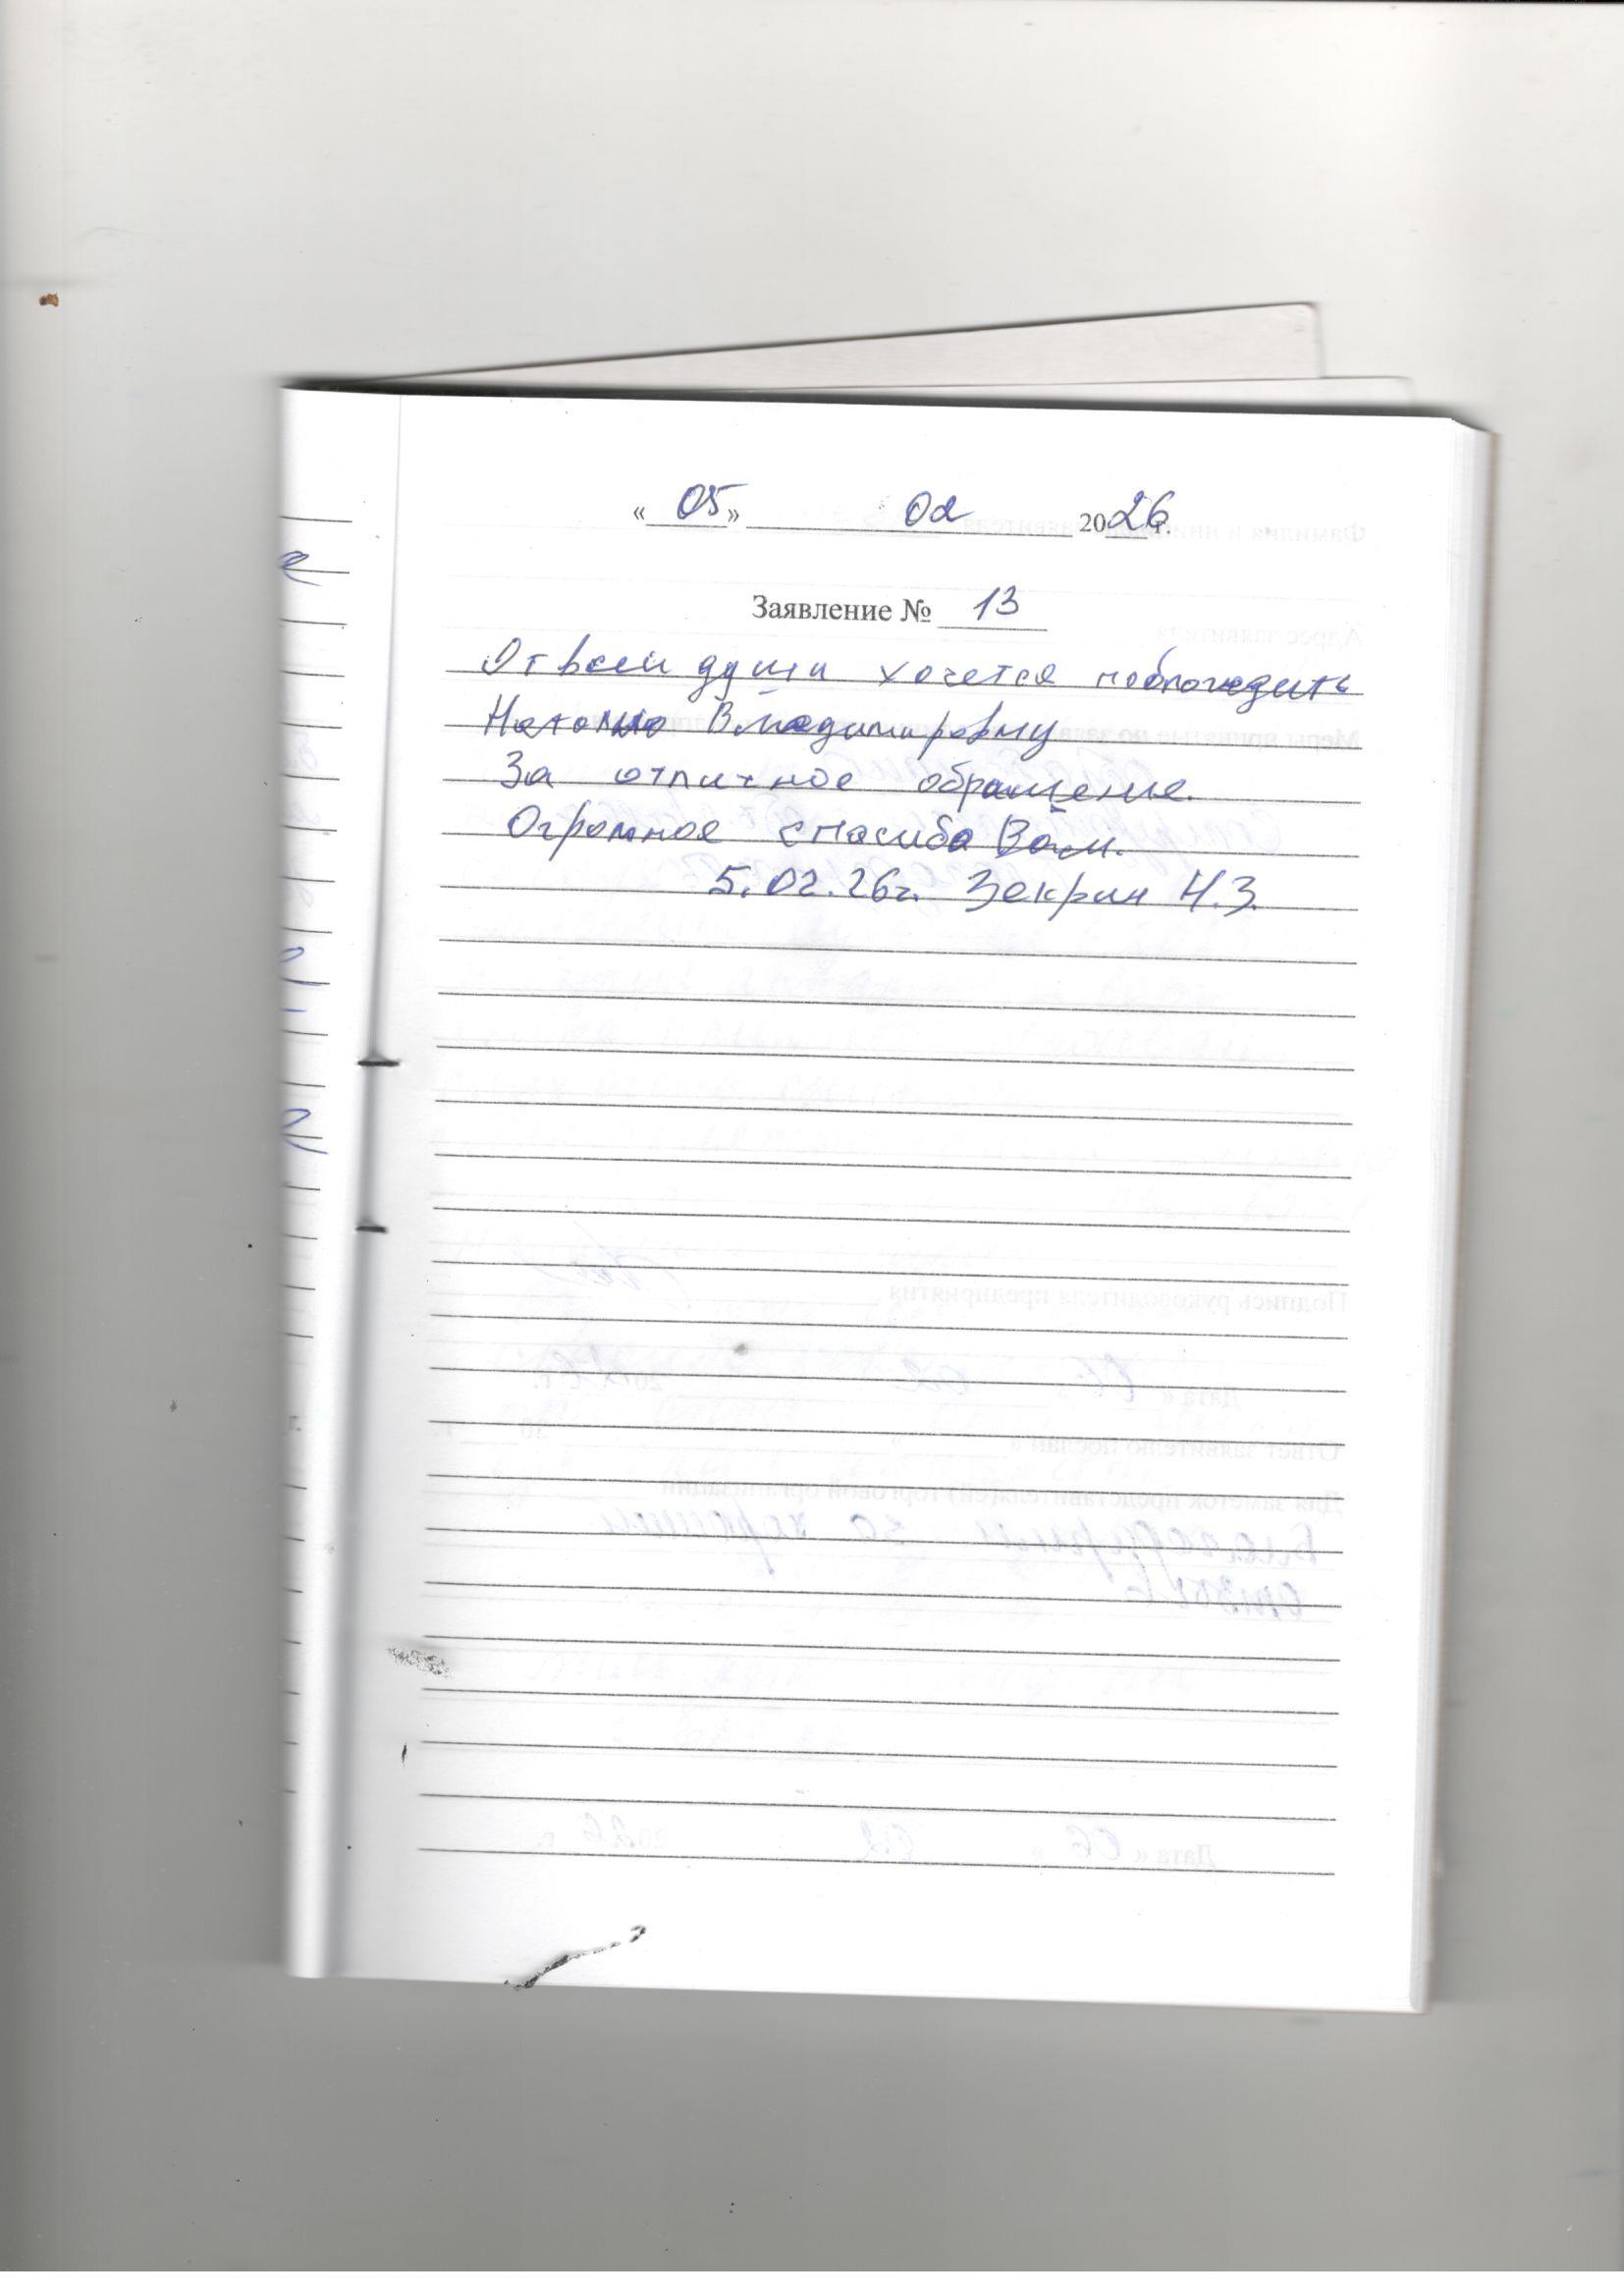 «05» 02 2026г.
Заявление № 13
От всей души хочется поблогодить
Наталию Владимировну
За отличное обращение.
Огромное спасибо Вам.
5.02.26г. Зекрин Н.З.